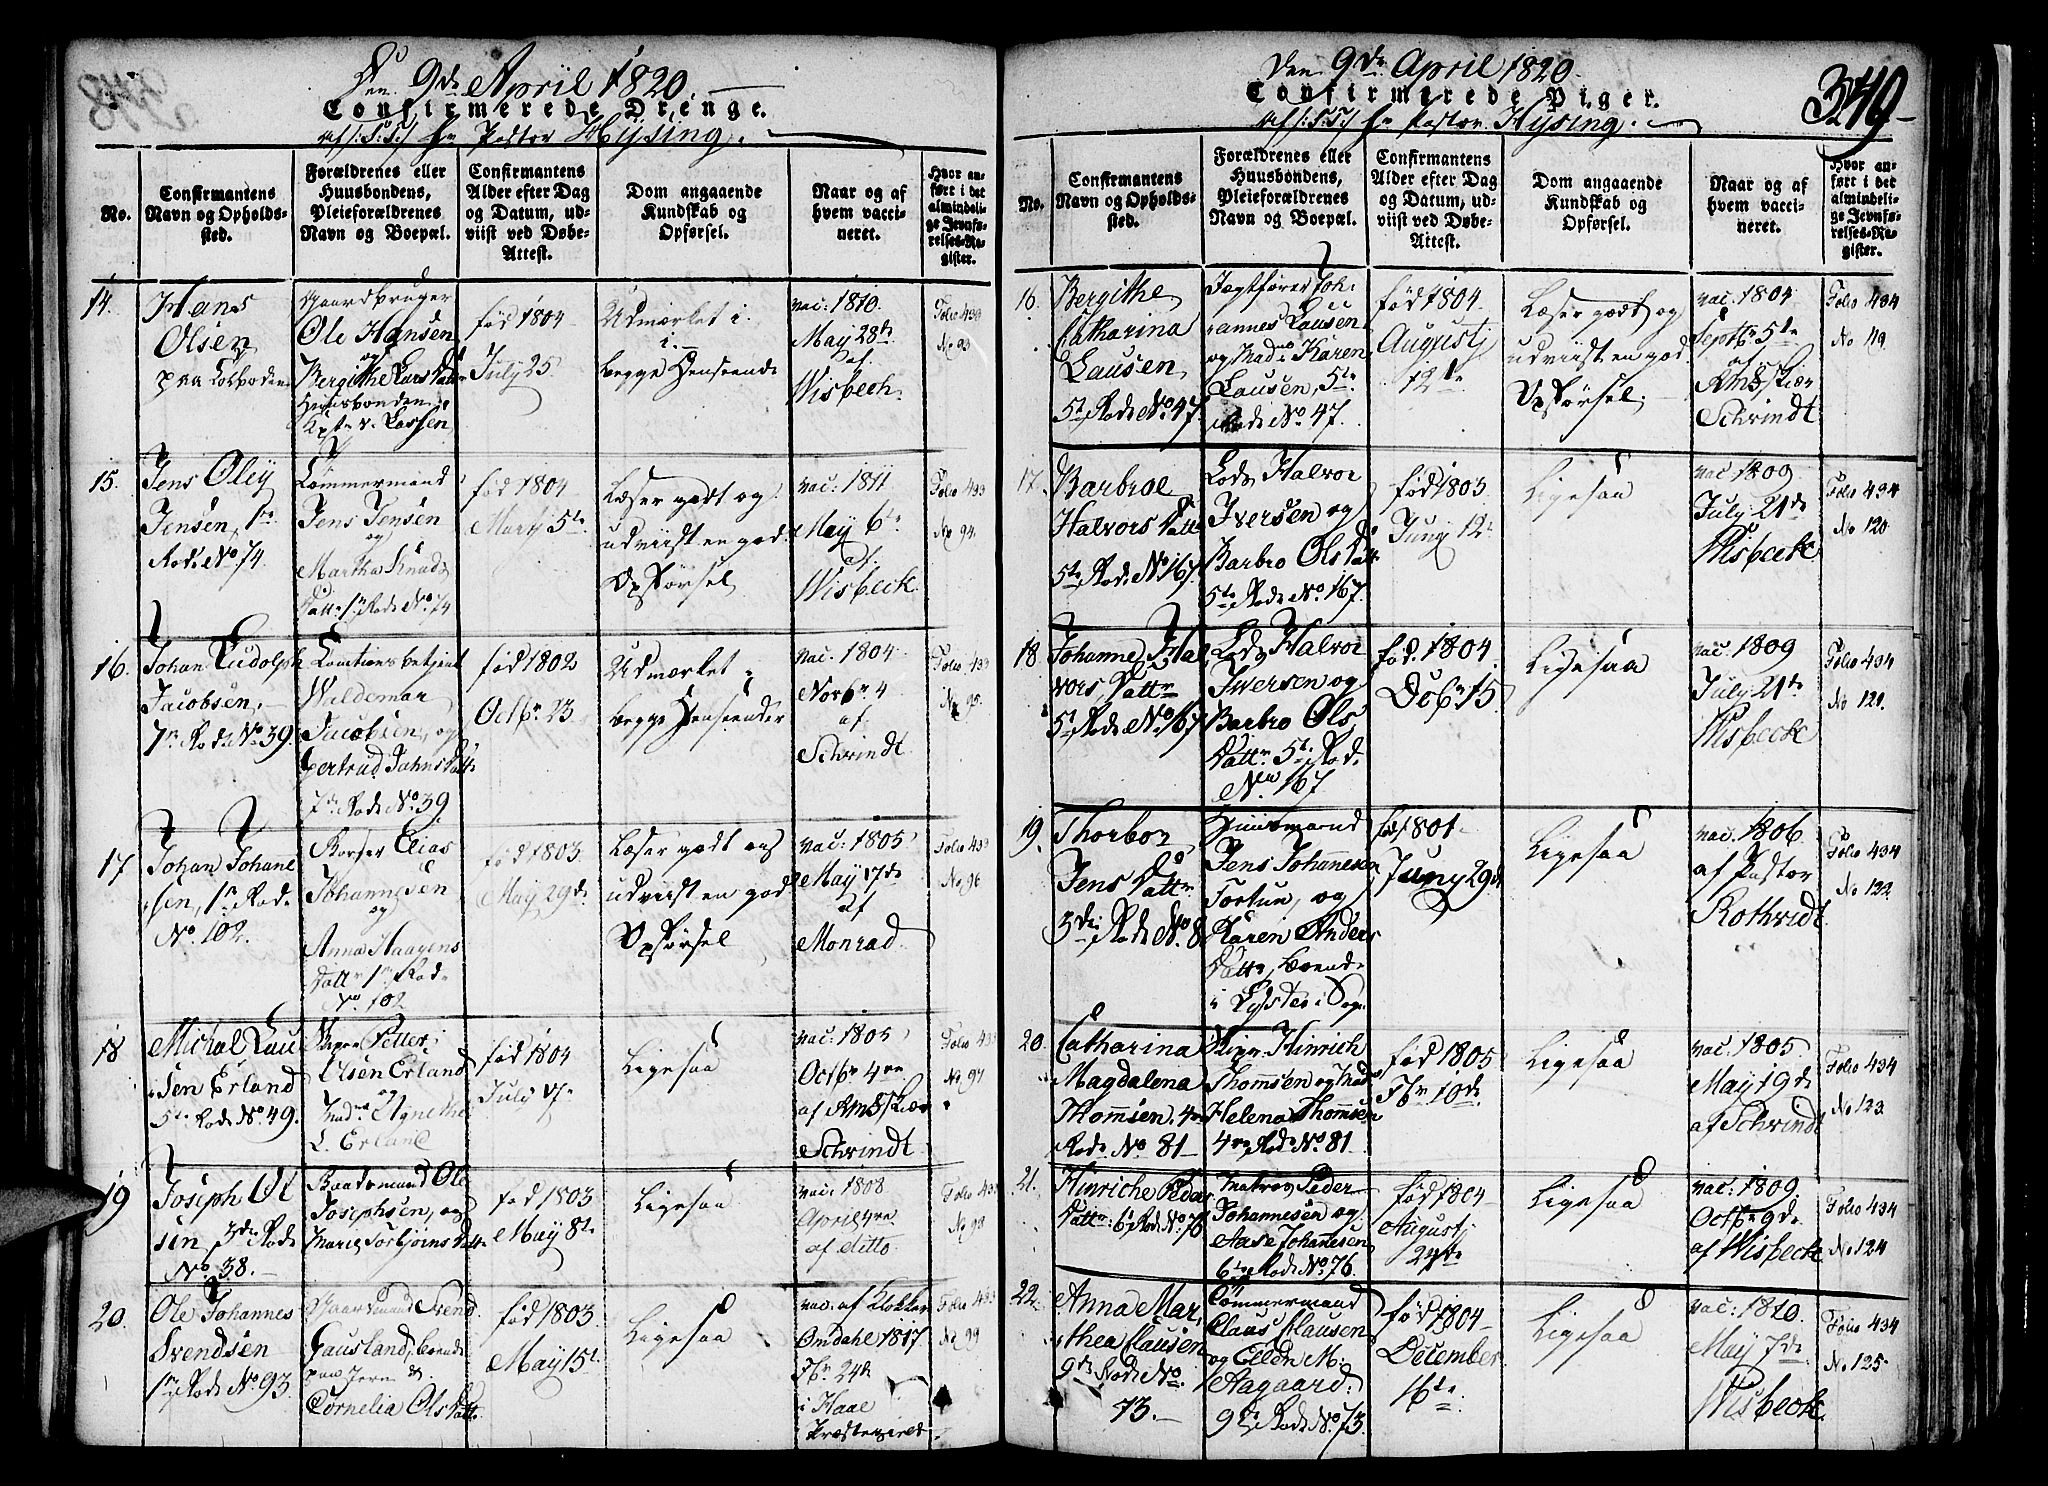 Den 9de Apriil 1820.
Confirmerede Drenge.
af S: T: Hr Pastor Hysing.
No.
Confirmantens
Navn og Opholds-
sted.
Forældrenes eller
Huusbondens,
Pleieforældrenes
Navn og Boepæl.
Confirmantens
Alder efter Dag
og Datum, ud-
viist ved Døbe-
Attest.
Dom angaaende
Kundskab og
Opførsel.
Naar og af
hvem vacci-
neret.
Hvor an-
ført i det
almindeli-
ge Jevnfø-
relses-Re-
gister.
14.
Hans
Olsen
paa
Gaardbruger
Ole Hansen
og
Bergithe Lars Datt
Huusbonden
født 1804
July 25.
Udmærket i
begge Henseende
vac: 1810.
May 28de
af
Wisbech.
Folio 433
No 93
15.
Jens Oley
Jensen, 1te
Rode No 74.
Tømmermand
Jens Jensen
og
Martha Knuds
Datter 1te Rode No 74
født 1804
Marty 5te
Læser godt og
udviist en god
Opførsel
vac: 1811
May 6te
af
Wisbeck
Folio 433
No 94.
16.
Johan Rudolph
Jacobsen,
7de Rode No 39.
Waldemar
Jacobsen, og
Gertrud Jahns Datt
7de Rode No 39.
født 1802
Octbr 23
Udmærket i
begge Henseender
vac. 1804
Novbr 4
af
Schvindt
Folio 433
No 95.
17
Johan Johane
sen, 1te Rode
No 102.
Elias
Johannesen
og
Anna Haagens
Datter 1te Rode
No 102
født 1803.
May 29de
Læser godt og
udviist en god
Opførsel
vac: 1805
May 17de
af
Monrad.
Folio 433
No 96
18
Michal Lau
sen Erland
5te Rode No 49.
Petter
Olsen Erland
og
Mad Agnethe
L. Erland
født 1804
July 17de
Ligesaa
vac: 1805
Octbr 4re
af
Schvindt
Folio 433
No 97
19
Joseph Ol
sen, 3die Rode
No 38.
Baadsmand Ole
Josephsen, og
Marie Torbjørns Datt
født 1803
May 8de
Ligesaa
vac: 1808
April 4re
af ditto
Folio 433
No 98
20.
Ole Johannes
Svendsen
1te Rode No 93.
Gaardmand Svend
Gausland, boende
paa Jern &
Cornelia Ols Datt.
født 1803.
May 15de
Ligesaa
vac. af Klokker
Omdahl 1817
24de
i Haae
Præstegield
Folio 433
No 99
Den 9de April 1820.
Confirmerede Piger.
af S: T: Hr Pastor Hysing.
349
No.
Confirmantens
Navn og Opholds-
sted.
Forældrenes eller
Huusbondens,
Pleieforældrenes
Navn og Boepæl.
Confirmantens
Alder efter Dag
og Datum, ud-
viist ved Døbe-
Attest.
Dom angaaende
Kundskab og
Opførsel.
Naar og af
hvem vacci-
neret.
Hvor an-
ført i det
almindeli-
ge Jevnfø-
relses-Re-
gister.
16.
Bergithe
Catharina
Lausen
5te Rode No 47.
Jagtfører Joh:
annes Lausen
og Mad Karen
Lausen, 5te
Rode No 47.
født 1804
Augustj
12te
Læser godt og
udviist en god
Opførsel.
vac: 1804
Septbr 5te
af
Schvindt
Folio 434
No 119.
17.
Barbroe
Halvors Datt
5te Rode No 167.
Lods Halvor
Iversen og
Barbro Ols Datt
5te Rode No 167.
født 1803.
Juny 12te
Ligesaa
vac 1809
July 21de
Wisbeck
Folio 434
No 120
18
Johanne Hal
vors Datter
5te Rode No 167
Lods Halvor
Iwersen og
Barbro Ols
Datter 5te Rode
No 167
fød. 1804.
15.
Ligesaa
vac. 1809
July 21de
Wisbeck
Folio 434
No 121.
19.
Thorbor
Jens Datter
3die Rode No 8
Huusmand
Jens Johannesen
Fortun, og
Karen Anders
Datter, boende
i Lyster i Sogn
fød 1801.
Juny 29de
Ligesaa
vac. 1806.
af Pastor
Rothvidt
Folio 434
No 122.
20.
Catharina
Magdalena
Thomsen. 4re
Rode No 81
Hinrich
Thomsen og Mad
Helena Thomsen
4re Rode No 81.
fød 1805
10de
Ligesaa
vac: 1805.
May 19de
af Schvindt
Folio 434
No 123.
21.
Hinriche Peder
Datter: 6te Rode No 76
Matros Peder
Johannesen og
Aase Johannesen
6te Rode No 76.
fød 1804
Augustj
24de
Ligesaa
vac: 1809.
Octbr 9de
af Wisbeck
Folio 434
No 124
22.
Anna Mar
thea Clausen
9de Rode No
73.
Tømmermand
Claus Clausen
og Ellen M:
Aagaard:
9de Rode No 73.
fød 1804
December
16de
Ligesaa
vac: 1810.
May 7de
Wisbeck
Folio 434
No 125